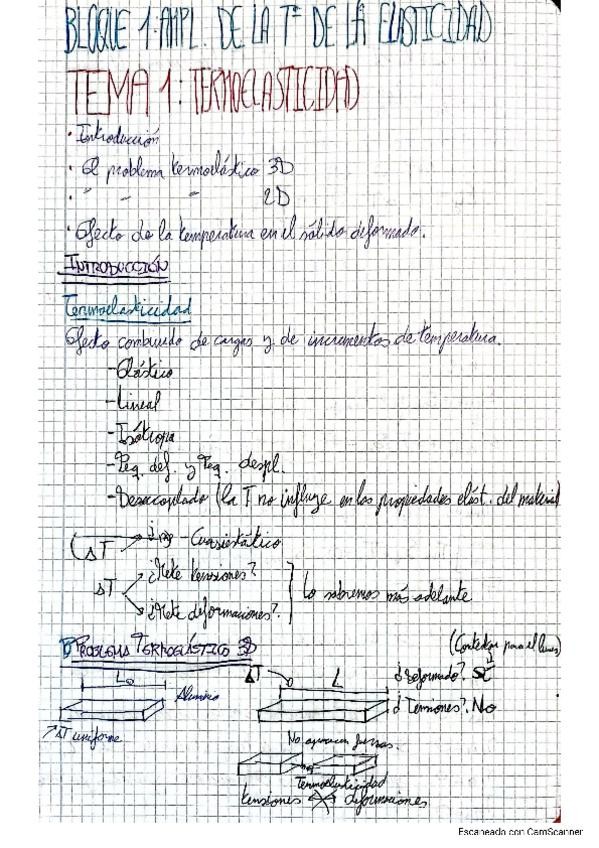 BLOQUE 1: AMPL. DE LA Tª DE LA ELASTICIDAD
TEMA 1: TERMOELASTICIDAD
· Introducción
· El problema termoelástico 3D
· " " " 2D
· Efecto de la temperatura en el sólido deformado.
INTRODUCCIÓN
Termoelasticidad
Efecto combinado de cargas y de incrementos de temperatura.
- Elástico
- Lineal
- Isótropo
- Peq. def. y Peq. despl.
- Desacoplado (la T no influye en las propiedades elást. del material)
- Cuasiestático
ΔT
ΔT
¿Mete tensiones?
¿Mete deformaciones?
Lo sabremos más adelante
PROBLEMA TERMOELÁSTICO 3D
(Contestar para el lunes)
L₀
Aluminio
ΔT
L
¿deformado? Sí
¿Tensiones? No
ΔT uniforme
No aparecen fuerzas.
Termoelasticidad
tensiones deformaciones
Escaneado con CamScanner